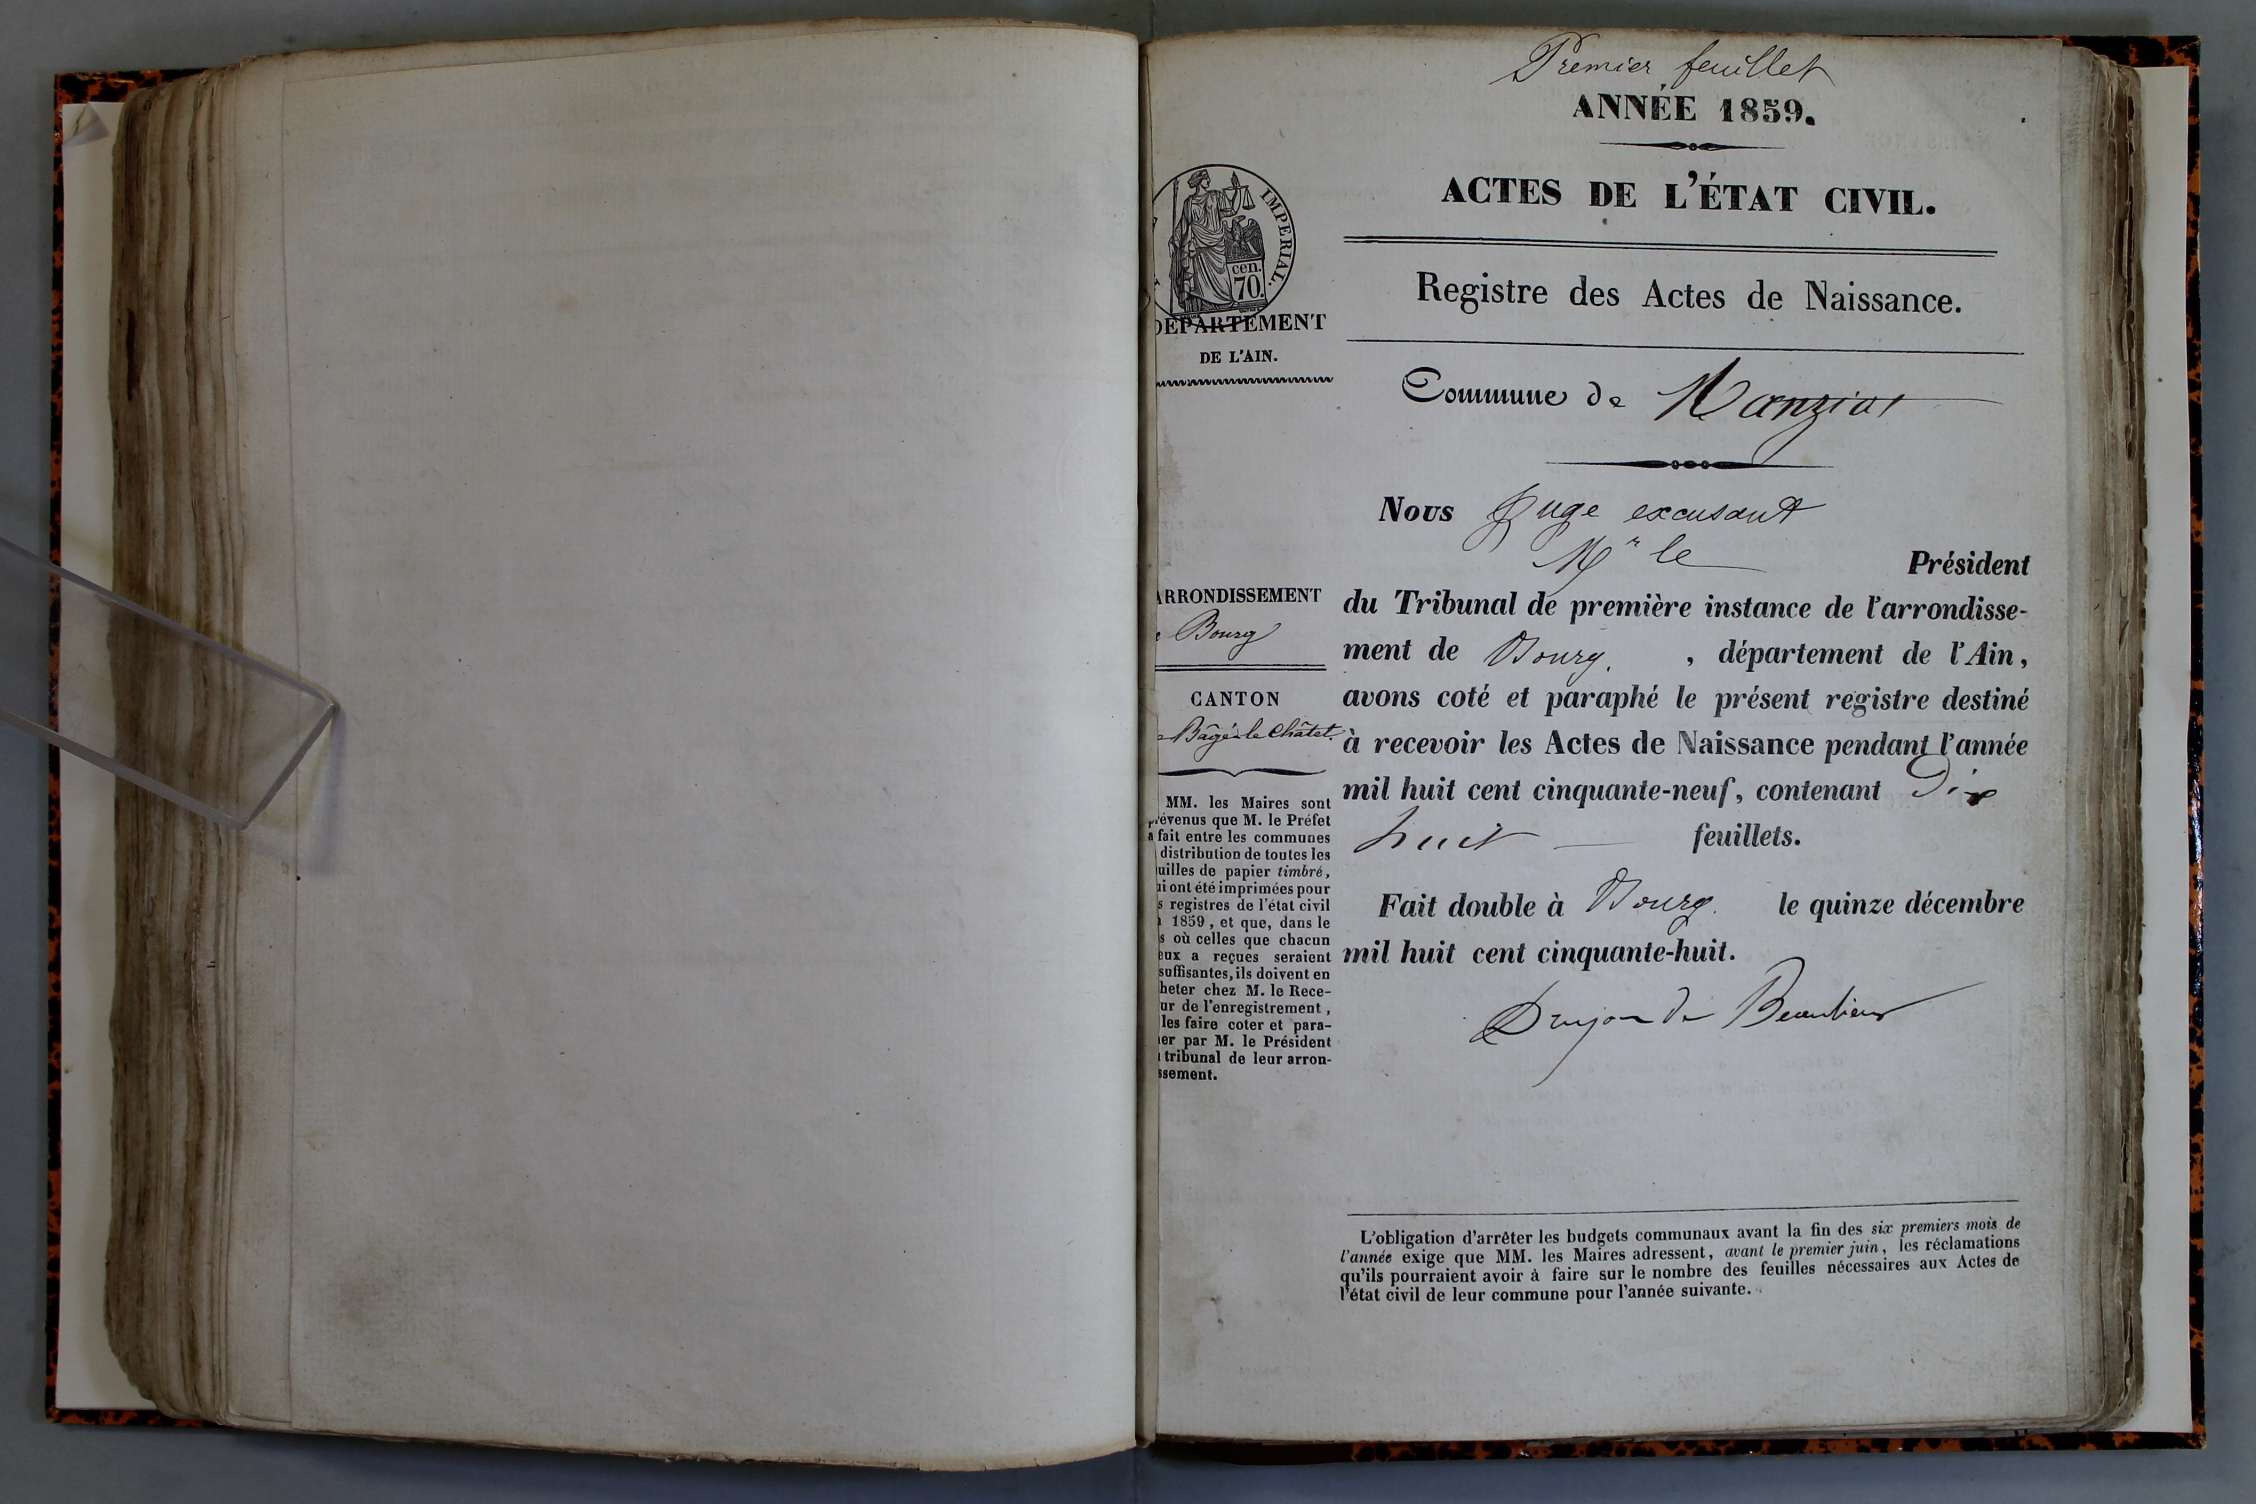 Premier feuillet
ANNÉE 1859.
ACTES DE L'ÉTAT CIVIL.
Registre des Actes de Naissance.
IMPERIAL.
cen.
70.
DÉPARTEMENT
DE L'AIN.
Commune de Manziat
Nous Juge excusant
Mr le Président
du Tribunal de première instance de l'arrondisse-
ment de Bourg. , département de l'Ain,
avons coté et paraphé le présent registre destiné
à recevoir les Actes de Naissance pendant l'année
mil huit cent cinquante-neuf, contenant Dix
huit feuillets.
Fait double à Bourg. le quinze décembre
mil huit cent cinquante-huit.
Drujon de Beaulieu
ARRONDISSEMENT
e Bourg
CANTON
e Bâgé-le-Châtel.
MM. les Maires sont
prévenus que M. le Préfet
a fait entre les communes
distribution de toutes les
uilles de papier timbré,
ui ont été imprimées pour
s registres de l'état civil
1859, et que, dans le
s où celles que chacun
eux a reçues seraient
suffisantes, ils doivent en
heter chez M. le Rece-
ur de l'enregistrement,
les faire coter et para-
er par M. le Président
tribunal de leur arron-
ssement.
L'obligation d'arrêter les budgets communaux avant la fin des six premiers mois de
l'année exige que MM. les Maires adressent, avant le premier juin, les réclamations
qu'ils pourraient avoir à faire sur le nombre des feuilles nécessaires aux Actes de
l'état civil de leur commune pour l'année suivante.